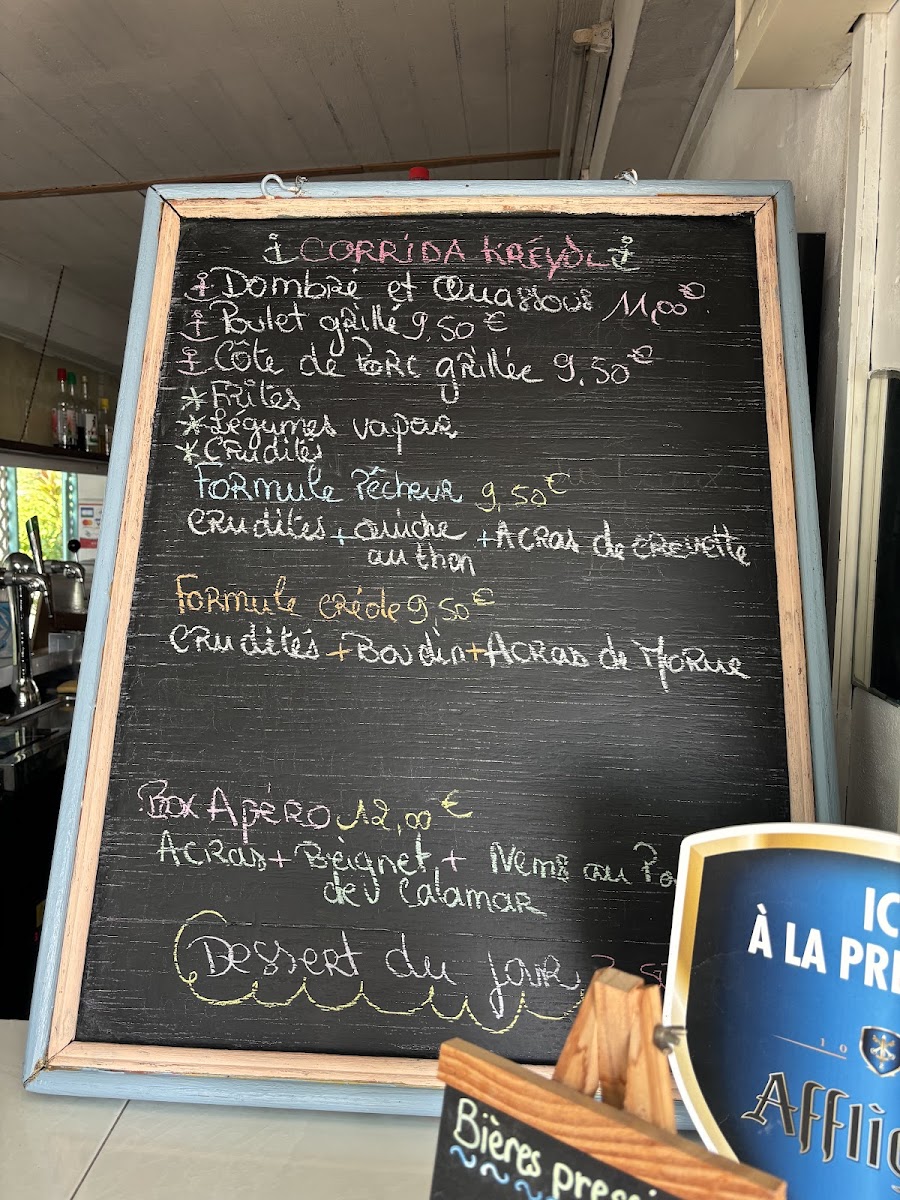 CORRIDA KRÉYOL
Dombré et Ouassous 11,00€
Poulet grillé 9,50€
Côte de Porc grillée 9,50€
*Frites
*Légumes vapeur
*Crudités
Formule Pêcheur 9,50€
Crudites + Quiche + Acras de crevette
au thon
Formule créole 9,50€
Crudités + Boudin + Acras de Morue
Box Apéro 12,00€
Acras + Beignet + Nems au
de Calamar
Dessert du jour
IC
À LA PRE
10
Afflig
Bières pressi